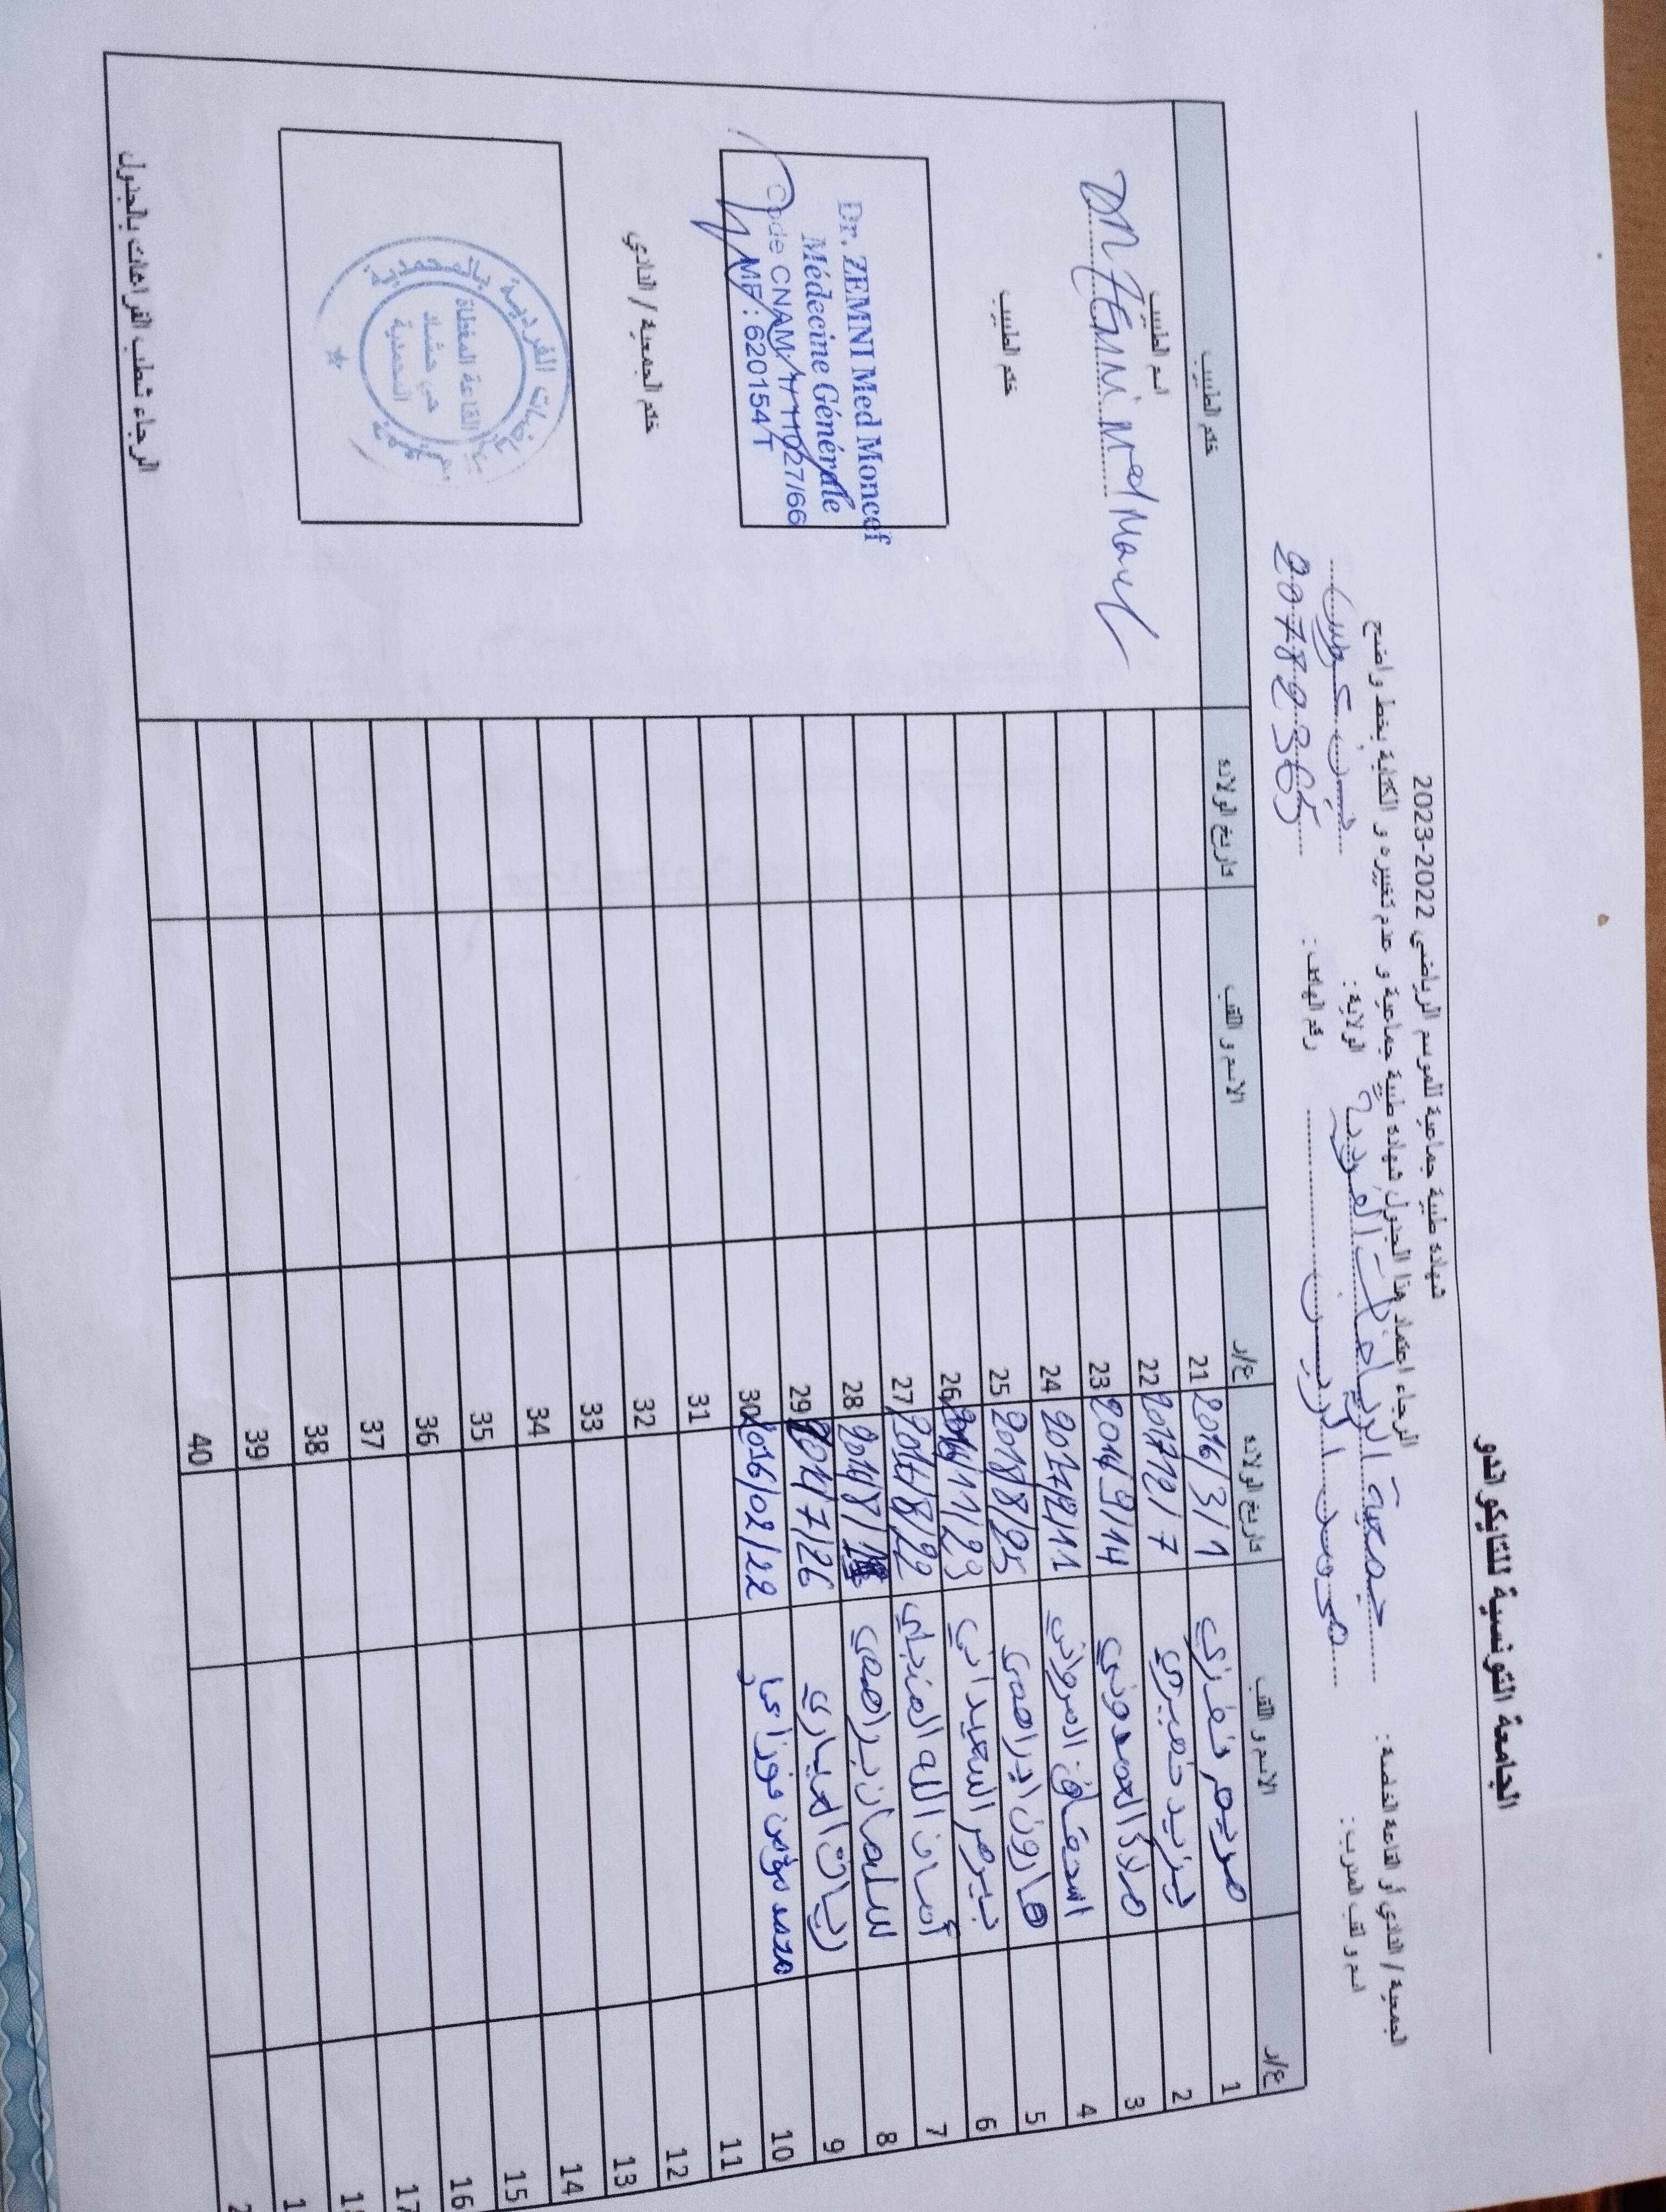 الجامعة التونسية للتايكواندو
شهادة طبية جماعية للموسم الرياضي 2022-2023
الرجاء اعتماد هذا الجدول شهادة طبية جماعية و عدم تغييره و الكتابة بخط واضح
الجمعية / النادي أو القاعة الخاصة : جمعية الرياضات الفردية الولاية : بن عروس
اسم و لقب المدرب : رقم الهاتف : 20789365
ع/ر الاسم و اللقب تاريخ الولادة ع/ر الاسم و اللقب تاريخ الولادة ختم الطبيب
1 مريم نفزي 2016/3/1 21
2 يزيد خميري 2017/12/7 22
3 ملاك العمدوني 2014/9/14 23
4 اسحاق المرواني 2017/2/11 24
5 هارون ابراهمي 2018/8/25 25
6 بيرم السعيداني 11/23 26
7 أمان الله المنجلي 2014/8/22 27
8 سليمان براهمي 2014/8/ 28
9 ريان العياري 2014/7/26 29
10 محمد مؤمن فوزاعي 2016/02/22 30
11 31
12 32
13 33
14 34
15 35
16 36
17 37
1 38
1 39
2 40
اسم الطبيب
Dr ZEMNI Med Moncef
ختم الطبيب
Dr. ZEMNI Med Moncef
Médecine Générale
Code CNAM: 1/11027/66
MF: 620154/T
ختم الجمعية / النادي
الفردية بالمحمدية
القاعة المغطاة
حي حشاد
المحمدية
الرجاء شطب الفراغات بالجدول